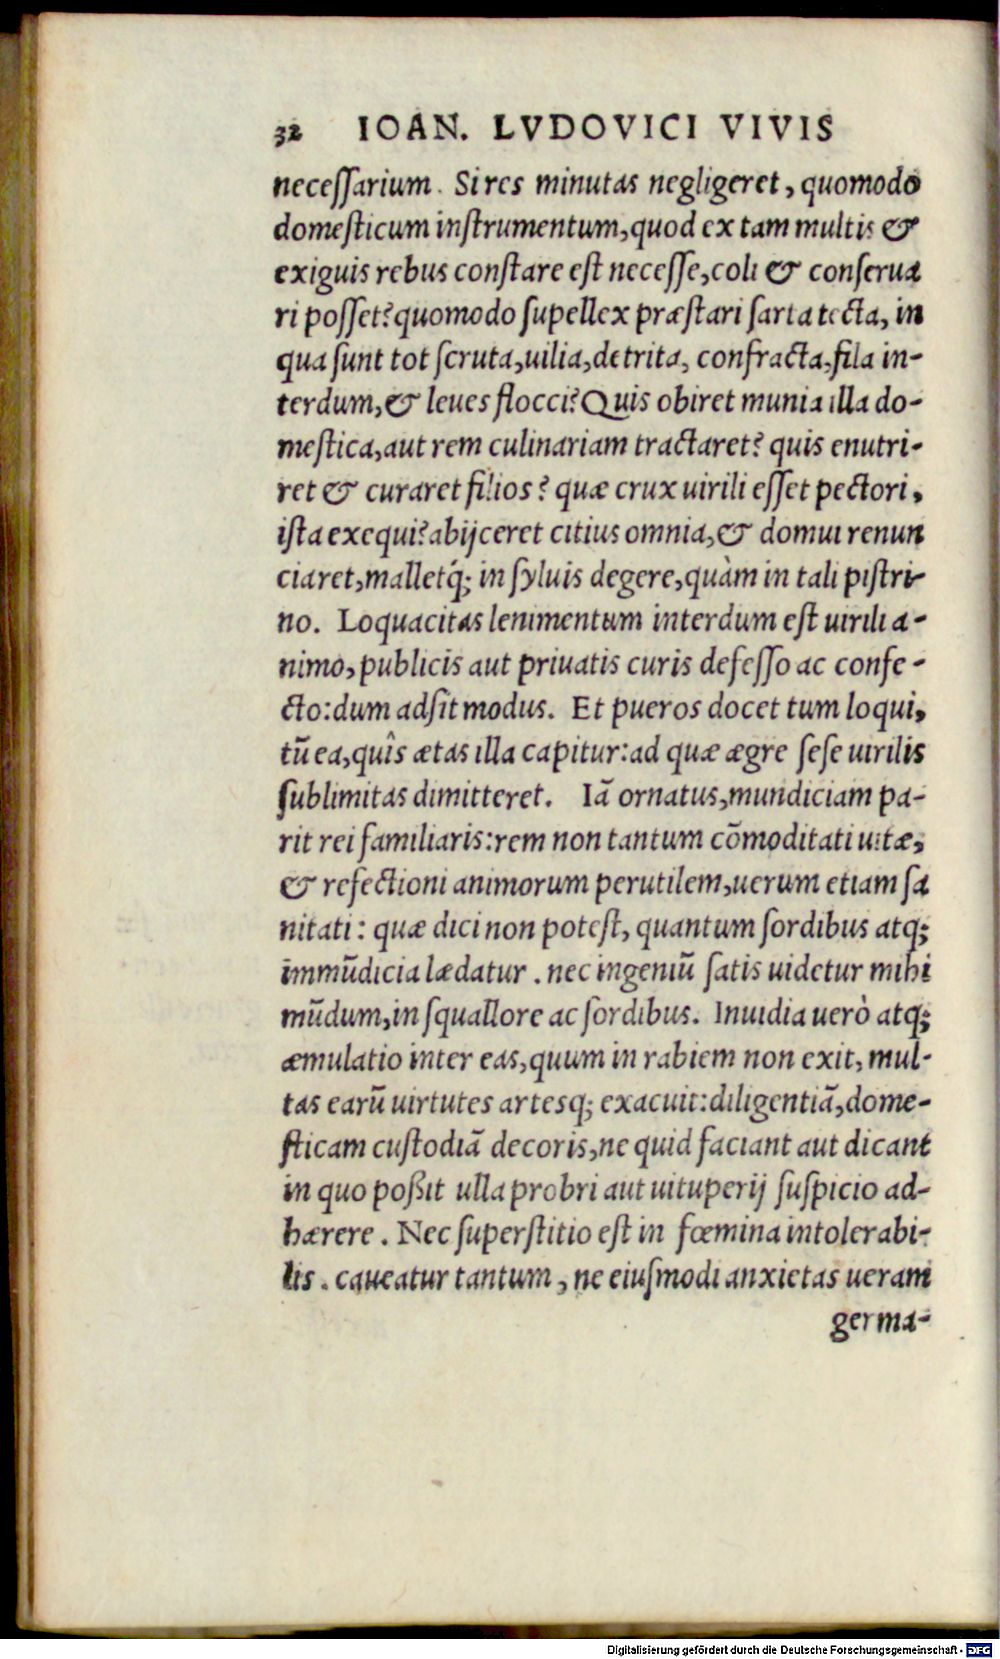 32 IOAN. LVDOVICI VIVIS
neceſſarium. Si res minutas negligeret, quomodo
domeſticum inſtrumentum, quod ex tam multis &
exiguis rebus conſtare eſt neceſſe, coli & conſerua
ri poſſet? quomodo ſupellex præſtari ſarta tecta, in
qua ſunt tot ſcruta, uilia, detrita, confracta, fila in-
terdum, & leues flocci? Quis obiret munia illa do-
meſtica, aut rem culinariam tractaret? quis enutri-
ret & curaret filios? quæ crux uirili eſſet pectori,
iſta exequi? abijceret citius omnia, & domui renun
ciaret, malletq́; in ſyluis degere, quàm in tali piſtri-
no. Loquacitas lenimentum interdum eſt uirili a-
nimo, publicis aut priuatis curis defeſſo ac confe-
cto: dum adſit modus. Et pueros docet tum loqui,
tũ ea, quîs ætas illa capitur: ad quæ ægre ſeſe uirilis
ſublimitas dimitteret. Iã ornatus, mundiciam pa-
rit rei familiaris: rem non tantum cõmoditati uitæ,
& refectioni animorum perutilem, uerum etiam ſa
nitati: quæ dici non poteſt, quantum ſordibus atq;
immũdicia lædatur. nec ingeniũ ſatis uidetur mihi
mũdum, in ſquallore ac ſordibus. Inuidia uerò atq;
æmulatio inter eas, quum in rabiem non exit, mul-
tas earũ uirtutes artesq; exacuit: diligentiã, dome-
ſticam cuſtodiã decoris, ne quid faciant aut dicant
in quo poßit ulla probri aut uituperij ſuſpicio ad-
hærere. Nec ſuperſtitio eſt in fœmina intolerabi-
lis. caueatur tantum, ne eiuſmodi anxietas ueram
germa-
Digitalisierung gefördert durch die Deutsche Forschungsgemeinschaft - DFG